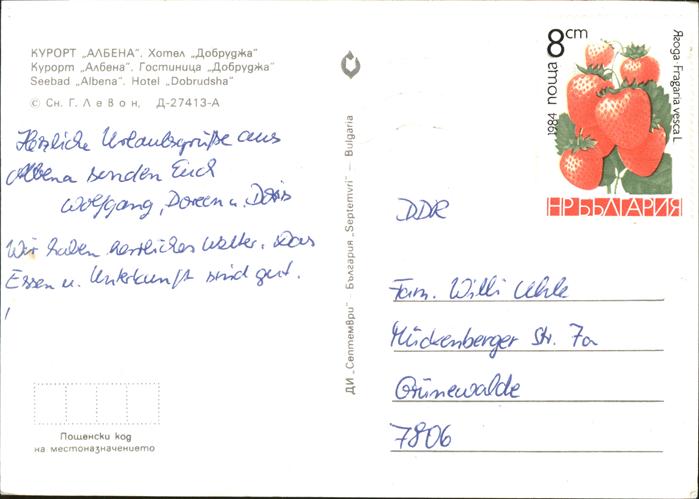 КУРОРТ „АЛБЕНА“. Хотел „Добруджа“
Курорт „Албена“. Гостиница „Добруджа“
Seebad „Albena“. Hotel „Dobrudsha“
© Сн. Г. Левон, Д-27413-А
Herzliche Urlaubsgrüße aus
Albena senden Euch
Wolfgang, Doreen u. Doris
Wir haben herrliches Wetter. Das
Essen u. Unterkunft sind gut.
Пощенски код
на местоназначението
ДИ „Септември“ – България „Septemvri“ – Bulgaria
8 cm
1984 поща
Ягода · Fragaria vesca L.
НР БЪЛГАРИЯ
DDR
Fam. Willi Uhle
Mückenberger Str. 7a
Grünewalde
7806